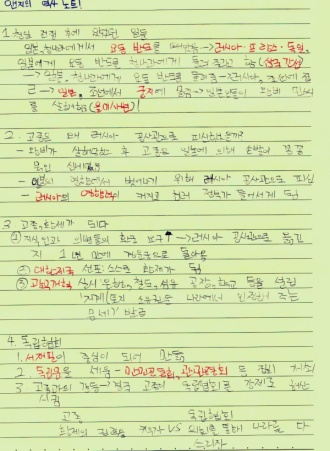 역사 노트!
1. 청일 전쟁 후에 일어난 일들
일본, 청나라에게서 요동 반도를 → 러시아·프랑스·독일,
일본에게 요동 반도를 청나라에게 돌려 주라고 함 (삼국 간섭)
→ 일본, 청나라에게 요동 반도를 돌려줌 → 러시아, 조선에
→ 일본, 조선에서 → 일본 민비
를 살해함 (을미사변)!
2. 고종은 왜 러시아 공사관으로 피신하였을까?
- 민비가 살해당한 후 고종은 일본에 의해
신세
- 일본의 벗어나기 위해 러시아 공사관으로 피신
- 러시아의 영향력이 커지고 친러 정부가 들어서게 됨
3. 고종, 황제가 되다
① 지식인과 의병들의 환궁 요구↑ → 러시아 공사관으로 옮긴
지 1년 만에 경운궁으로 돌아옴
② 대한제국 선포: 스스로 황제가 됨
③ 광무개혁 실시: 은행, 철도, 공장, 학교 등을 설립
'지계(토지 소유권을 나라에서 주는
문서)' 발급
4. 독립협회
1. 서재필이 중심이 되어 만듦
2. 독립문을 세움 - 만민공동회, 관민공동회 등 집회 개최
3. 고종과의 갈등 → 결국 고종이 독립협회를 강제로 해산
시킴
고종 독립협회
황제의 권력을 키우자 VS 의회를 통해 나라를 다
스리자